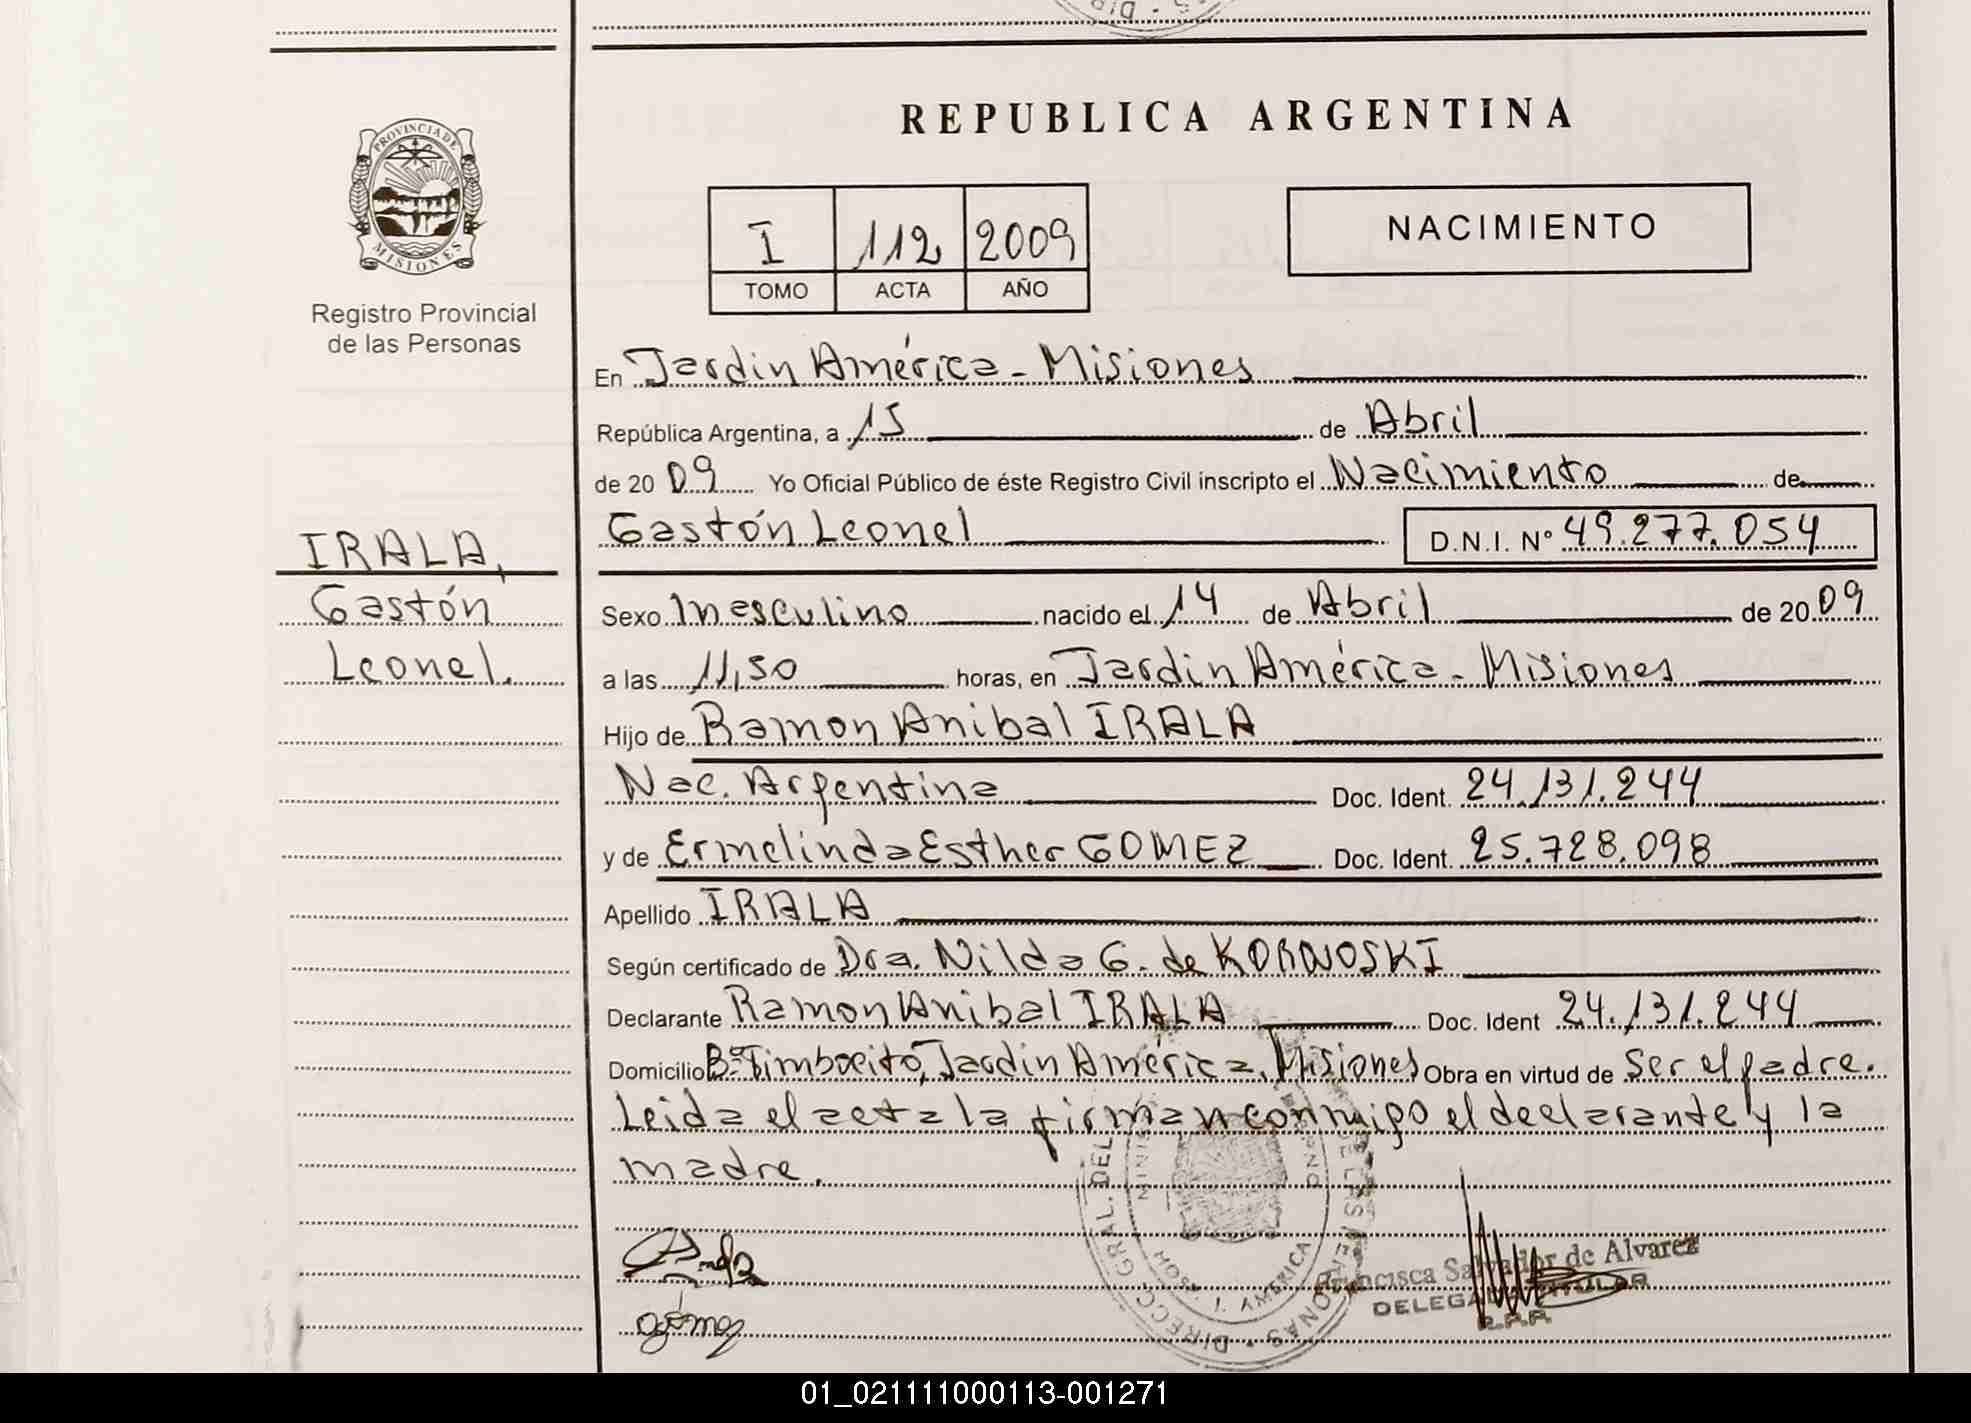 REPUBLICA ARGENTINA
PROVINCIA DE
MISIONES
Registro Provincial
de las Personas
I 112 2009
TOMO ACTA AÑO
NACIMIENTO
En Jardin América - Misiones
República Argentina, a 15 de Abril
de 20 09 Yo Oficial Público de éste Registro Civil inscripto el Nacimiento de
Gastón Leonel D.N.I. Nº 49.277.054
IRALA,
Gastón
Leonel.
Sexo Masculino nacido el 14 de Abril de 20 09
a las 11,50 horas, en Jardin América - Misiones
Hijo de Ramon Anibal IRALA
Nac. Argentina Doc. Ident. 24.131.244
y de Ermelinda Esther GOMEZ Doc. Ident. 25.728.098
Apellido IRALA
Según certificado de Dra. Nilda G. de
Declarante Ramon Anibal IRALA Doc. Ident 24.131.244
Domicilio Bº Timbocito, Jardin América, Misiones Obra en virtud de ser el padre.
Leida el acta la firman conmigo el declarante y la
madre.
DIRECC. GRAL. DEL
J. AMERICA
Francisca Salvador de Alvarez
DELEGADA TITULAR
R.P.P.
Gómez
01_021111000113-001271